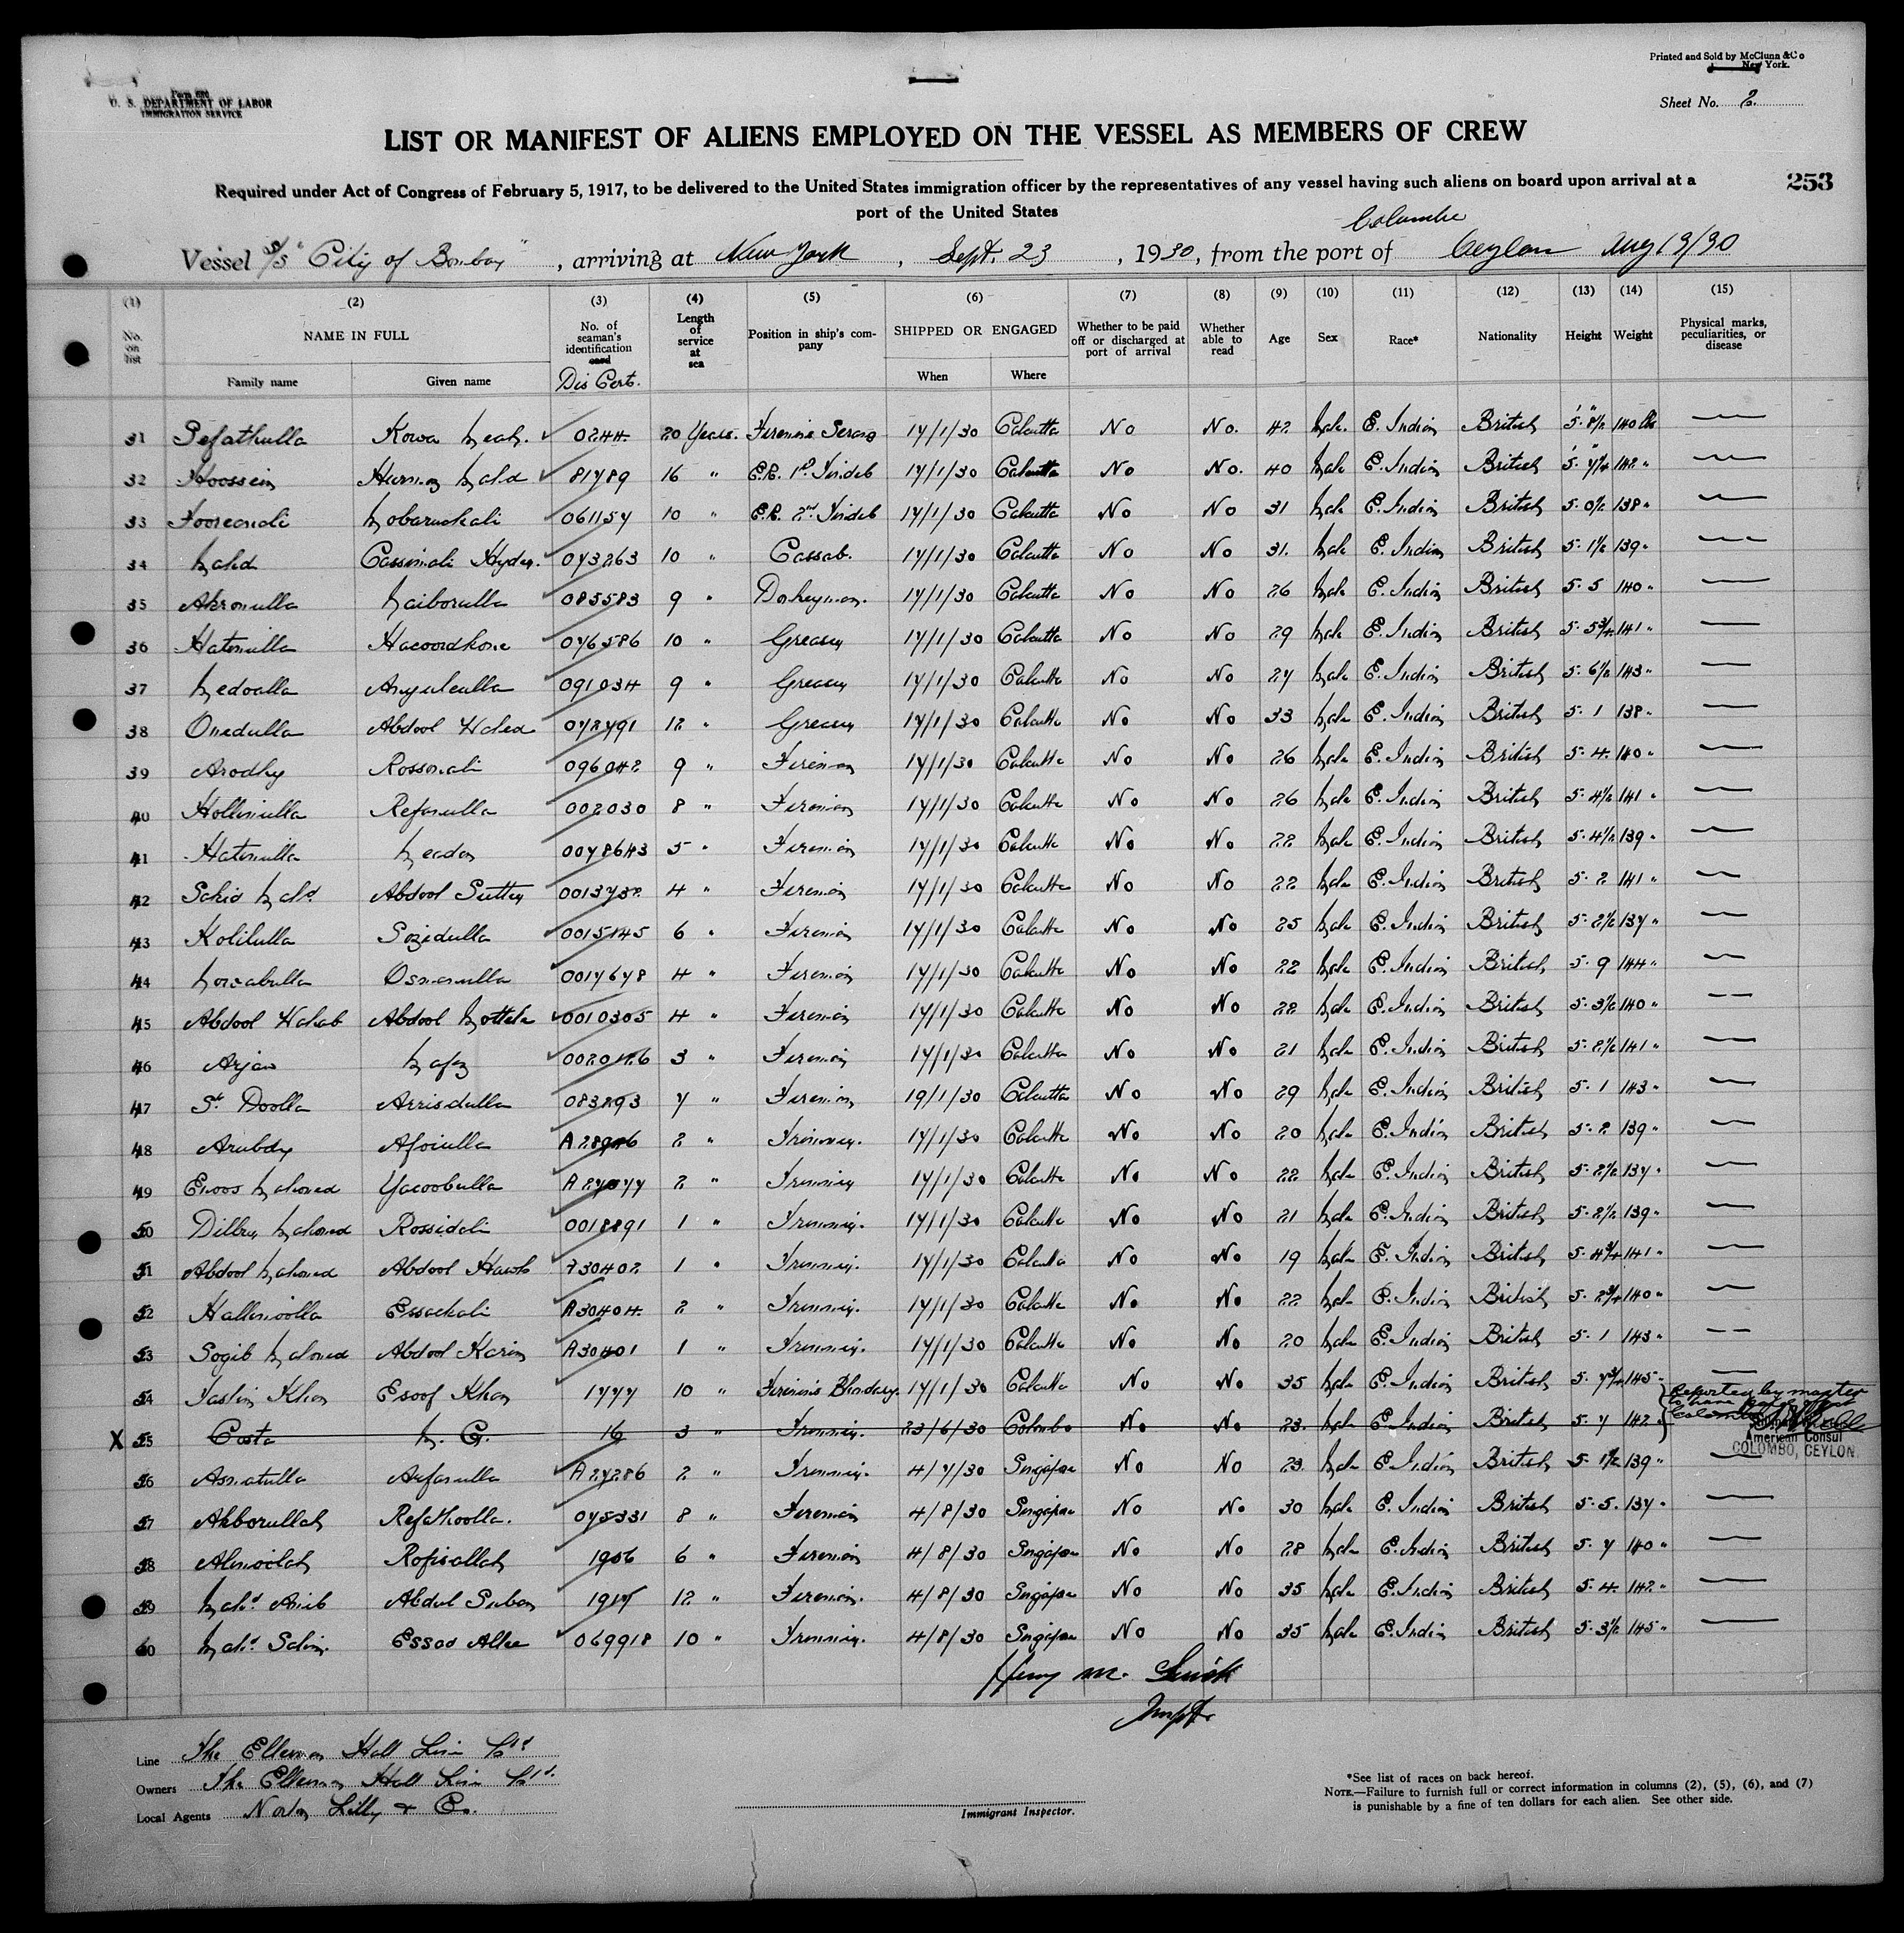 Form 680
U. S. DEPARTMENT OF LABOR
IMMIGRATION SERVICE
Printed and Sold by McClunn & Co
New York.
Sheet No. 2.
LIST OR MANIFEST OF ALIENS EMPLOYED ON THE VESSEL AS MEMBERS OF CREW
Required under Act of Congress of February 5, 1917, to be delivered to the United States immigration officer by the representatives of any vessel having such aliens on board upon arrival at a
port of the United States
253
Colombo
Vessel S/S "City of Bombay", arriving at New York, Sept. 23, 1930, from the port of Ceylon Aug 19/30
(1) (2) (3) (4) (5) (6) (7) (8) (9) (10) (11) (12) (13) (14) (15)
No. on list NAME IN FULL No. of seaman's identification card Length of service at sea Position in ship's company SHIPPED OR ENGAGED Whether to be paid off or discharged at port of arrival Whether able to read Age Sex Race* Nationality Height Weight Physical marks, peculiarities, or disease
Family name Given name Dis Cert. When Where
31 Sefathulla Kowa 0244 20 Years. Firemens Serang 17/1/30 Calcutta No No. 42 Male. E. Indian British 5' 8½" 140 lbs
32 Hoossein Mahd 81789 16 " E.R. 1st Tindel 17/1/30 Calcutta No No. 40 Male E. Indian British 142 "
33 Mobaruckali 061157 10 " E.R. 2nd Tindel 17/1/30 Calcutta No No 31 Male E. Indian British 5. 0½ 138 "
34 Mahd Cassimali Hyder. 073263 10 " Cassab. 17/1/30 Calcutta No No 31. Male E. Indian British 5. 1½ 139 "
35 Akromulla Maiborulla 085583 9 " Donkeyman. 17/1/30 Calcutta No No 26 Male E. Indian British 5. 5 140 "
36 Hatimulla 076586 10 " Greaser 17/1/30 Calcutta No No 29 Male E. Indian British 5. 5¾ 141 "
37 Medoalla 091034 9 " Greaser 17/1/30 Calcutta No No 27 Male E. Indian British 5. 6½ 143 "
38 Onedulla Abdool Wahed 072791 12 " Greaser 17/1/30 Calcutta No No 33 Male E. Indian British 5. 1 138 "
39 Arodhy Rossonali 096042 9 " Fireman 17/1/30 Calcutta No No 26 Male E. Indian British 5. 4. 140 "
40 Hollimulla Refanulla 002030 8 " Fireman 17/1/30 Calcutta No No 26 Male E. Indian British 5. 4½ 141 "
41 Hatimulla Meadon 0078643 5 " Fireman 17/1/30 Calcutta No No 22 Male E. Indian British 5. 4½ 139 "
42 Mahd. Abdool Sutter 0013732 4 " Fireman 17/1/30 Calcutta No No 22 Male E. Indian British 5. 2 141 "
43 Kolilulla Sozidulla 0015145 6 " Fireman 17/1/30 Calcutta No No 25 Male E. Indian British 5. 2½ 137 "
44 Osmanulla 0017678 4 " Fireman 17/1/30 Calcutta No No 22 Male E. Indian British 5. 9 144 "
45 Abdool Wahab Abdool Mottale 0010305 4 " Fireman 17/1/30 Calcutta No No 22 Male E. Indian British 5. 3½ 140 "
46 Arjan Mafiz 3 " Fireman 17/1/30 Calcutta No No 21 Male E. Indian British 5. 2½ 141 "
47 Sk. Doolla Arrisdulla 083293 7 " Fireman 19/1/30 Calcutta No No 29 Male E. Indian British 5. 1 143 "
48 Arubdy Afoiulla 2 " Trimmer. 17/1/30 Calcutta No No 20 Male E. Indian British 5. 2 139 "
49 Mahomed Yacoobulla 2 " Trimmer 17/1/30 Calcutta No No 22 Male E. Indian British 5. 2½ 137 "
50 Mahomed Rossidali 0018891 1 " Trimmer. 17/1/30 Calcutta No No 21 Male E. Indian British 5. 2½ 139 "
51 Abdool Mahomed Abdool 30402 1 " Trimmer. 17/1/30 Calcutta No No 19 Male E. Indian British 5. 4¾ 141 "
52 Hallimoolla Essackali A30404 2 " Trimmer. 17/1/30 Calcutta No No 22 Male E. Indian British 5. 2¾ 140 "
53 Sogib Mahomed Abdool Karim A30401 1 " Trimmer. 17/1/30 Calcutta No No 20 Male E. Indian British 5. 1 143 "
54 Taslim Khan Esoof Khan 1777 10 " Firemens Bhandary. 17/1/30 Calcutta No No 35 Male E. Indian British 5. 7¾ 145 "
Reported by master
X 55 Costa M. C. 16 3 " Trimmer. 23/6/30 Colombo No No 23. Male E. Indian British 5. 7 142 "
American Consul
COLOMBO, CEYLON
56 Asmatulla Aufanulla A27286 2 " Trimmer. 4/7/30 Singapore No No 23 Male E. Indian British 5. 1½ 139 "
57 Akborullah Refathoolla. 075331 8 " Fireman 4/8/30 Singapore No No 30 Male E. Indian British 5. 5. 137 "
58 Rofisallah 1906 6 " Fireman 4/8/30 Singapore No No 28 Male E. Indian British 5. 7 140 "
59 Mahd. Abdul Suban 12 " Fireman. 4/8/30 Singapore No No 35 Male E. Indian British 5. 4. 142 "
60 Mahd. Salim. Essad Allee 069918 10 " Trimmer. 4/8/30 Singapore No No 35 Male E. Indian British 5. 3½ 145 "
Henry M.
Inspt.
Line The Ellerman Hall Line Ltd
Owners The Ellerman Hall Line Ltd.
Local Agents Norton Lilly & Co.
Immigrant Inspector.
*See list of races on back hereof.
NOTE.—Failure to furnish full or correct information in columns (2), (5), (6), and (7)
is punishable by a fine of ten dollars for each alien. See other side.